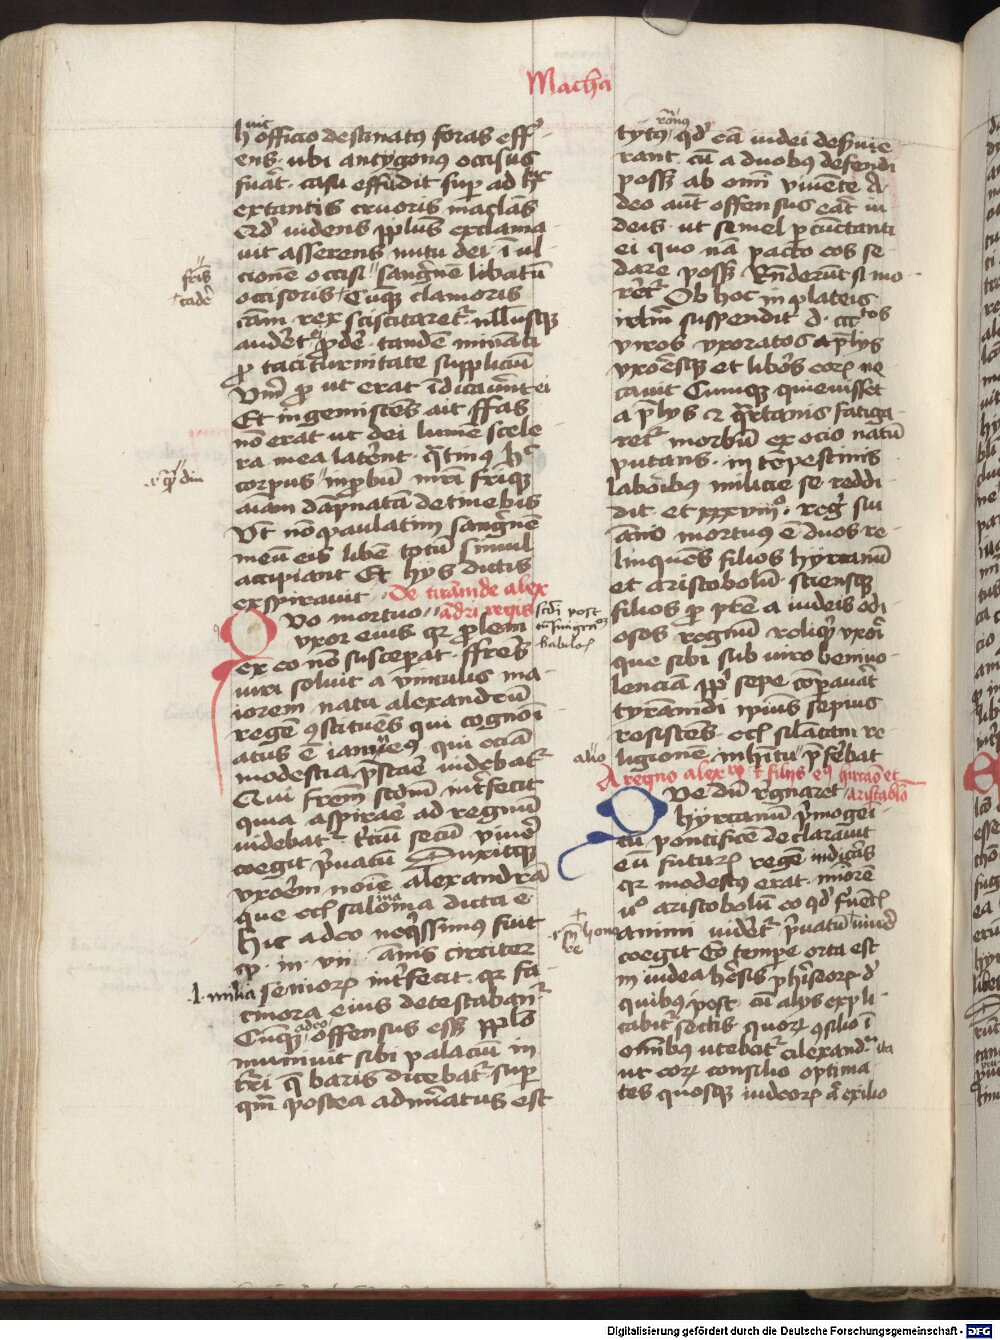 Macha
huic officio destinatus foras effer
ens ubi antygonus occisus
fuerat casu effudit super adhuc
extantis cruoris maculas
Quod videns populus exclama
vit asserens nutu dei in ul
cionem occisi sanguinem libatum
fratris
cadem
occisoris Cumque clamoris
causam rex sciscitaretur nullusque
auderet prodere tandem minanti
pro taciturnitate supplicium
verum pro ut erat indicaverunt ei
Et ingemiscens ait ffas
non erat ut dei lumen scele
ra mea laterent
corpus matri fratrique
animam dampnatam detinebis
Ut non paulatim sanguinem
meum eis libem totum simul
accipiant Et hijs dictis
exspiravit De tirannide alex
andri regis
Quo mortuo
uxor eius quia prolem
ex eo non susceperat ffratres
viri solvit a vinculis ma
iorem natu alexandrum
regem constituens qui cognoi
atus est iamneus qui eciam
modestia prestare videbatur
Qui fratrem secundum interfecit
quia aspirare ad regnum
videbatur tercium secum vivere
coegit privatum Duxitque
uxorem nomine alexandram
que et salomina dicta est
Hic adeo nequissimus fuit
quod in vii annis circiter
l milia seniorum interfecit quia fa
cinora eius detestabantur
Cumque adeo offensus esset populus
munivit sibi palacium in
turri que baris dicebatur super
quam postea admiratus est
tytus romanus quod eam iudei deserue
rant cum a duobus defendi
posset ab omni vivente A
deo autem offensus erat iu
deis ut semel percunctanti
ei quo nam pacto eos se
dare posset Responderunt si mo
reretur Ob hoc in plateis
irlm suspendit d ccctos
viros uxoratos
uxoresque et liberos eorum ne
cavit Cumque quievisset
a prelijs et quartanis fatiga
retur morbum ex ocio natum
putans intempestinis
laboribus milicie se reddi
dit et xxxviiio regni sui
anno mortuus est duos re
linquens filios hyrcanum
et aristobolum sciensque
filios pro patre a iudeis odi
osos regnum reliquit uxori
que sibi sub viro benivo
lenciam populi sepe comparaverat
tyrannidi ipsius sepius
resistens et silenciam re
ligionem
A regno alexandri et filijs eius hircano et
aristablo
Que dum regnaret
hyrcanum primogeni
tum pontificem declaravit
eum futurum regem indicans
quia modestus erat minorem
vero aristobolum eo quod ferventis
animi videretur privatum vivere
coegit Eo tempore orta est
in iudea heresis phariseorum de
quibus post cum alijs expli
cabitur sectis quorum consilio in
omnibus utebatur alexandra ita
ut eorum consilio optima
tes quosque iudeorum a exilio
Digitalisierung gefördert durch die Deutsche Forschungsgemeinschaft - DFG